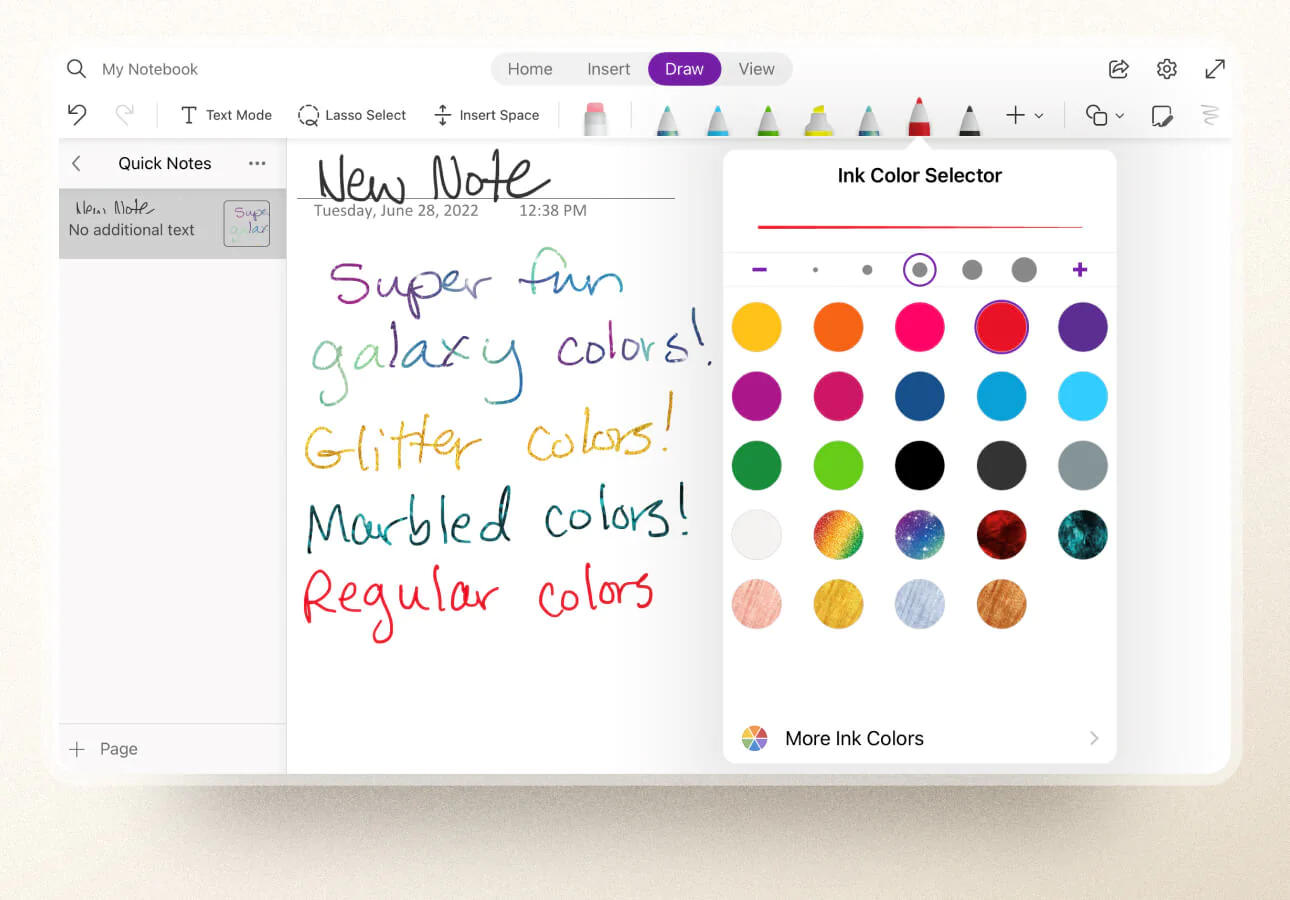 My Notebook
Home Insert Draw View
Text Mode Lasso Select Insert Space
Quick Notes
New Note
No additional text
Super
galax
Page
New Note
Tuesday, June 28, 2022 12:38 PM
Super fun
galaxy colors!
Glitter colors!
Marbled colors!
Regular colors
Ink Color Selector
More Ink Colors